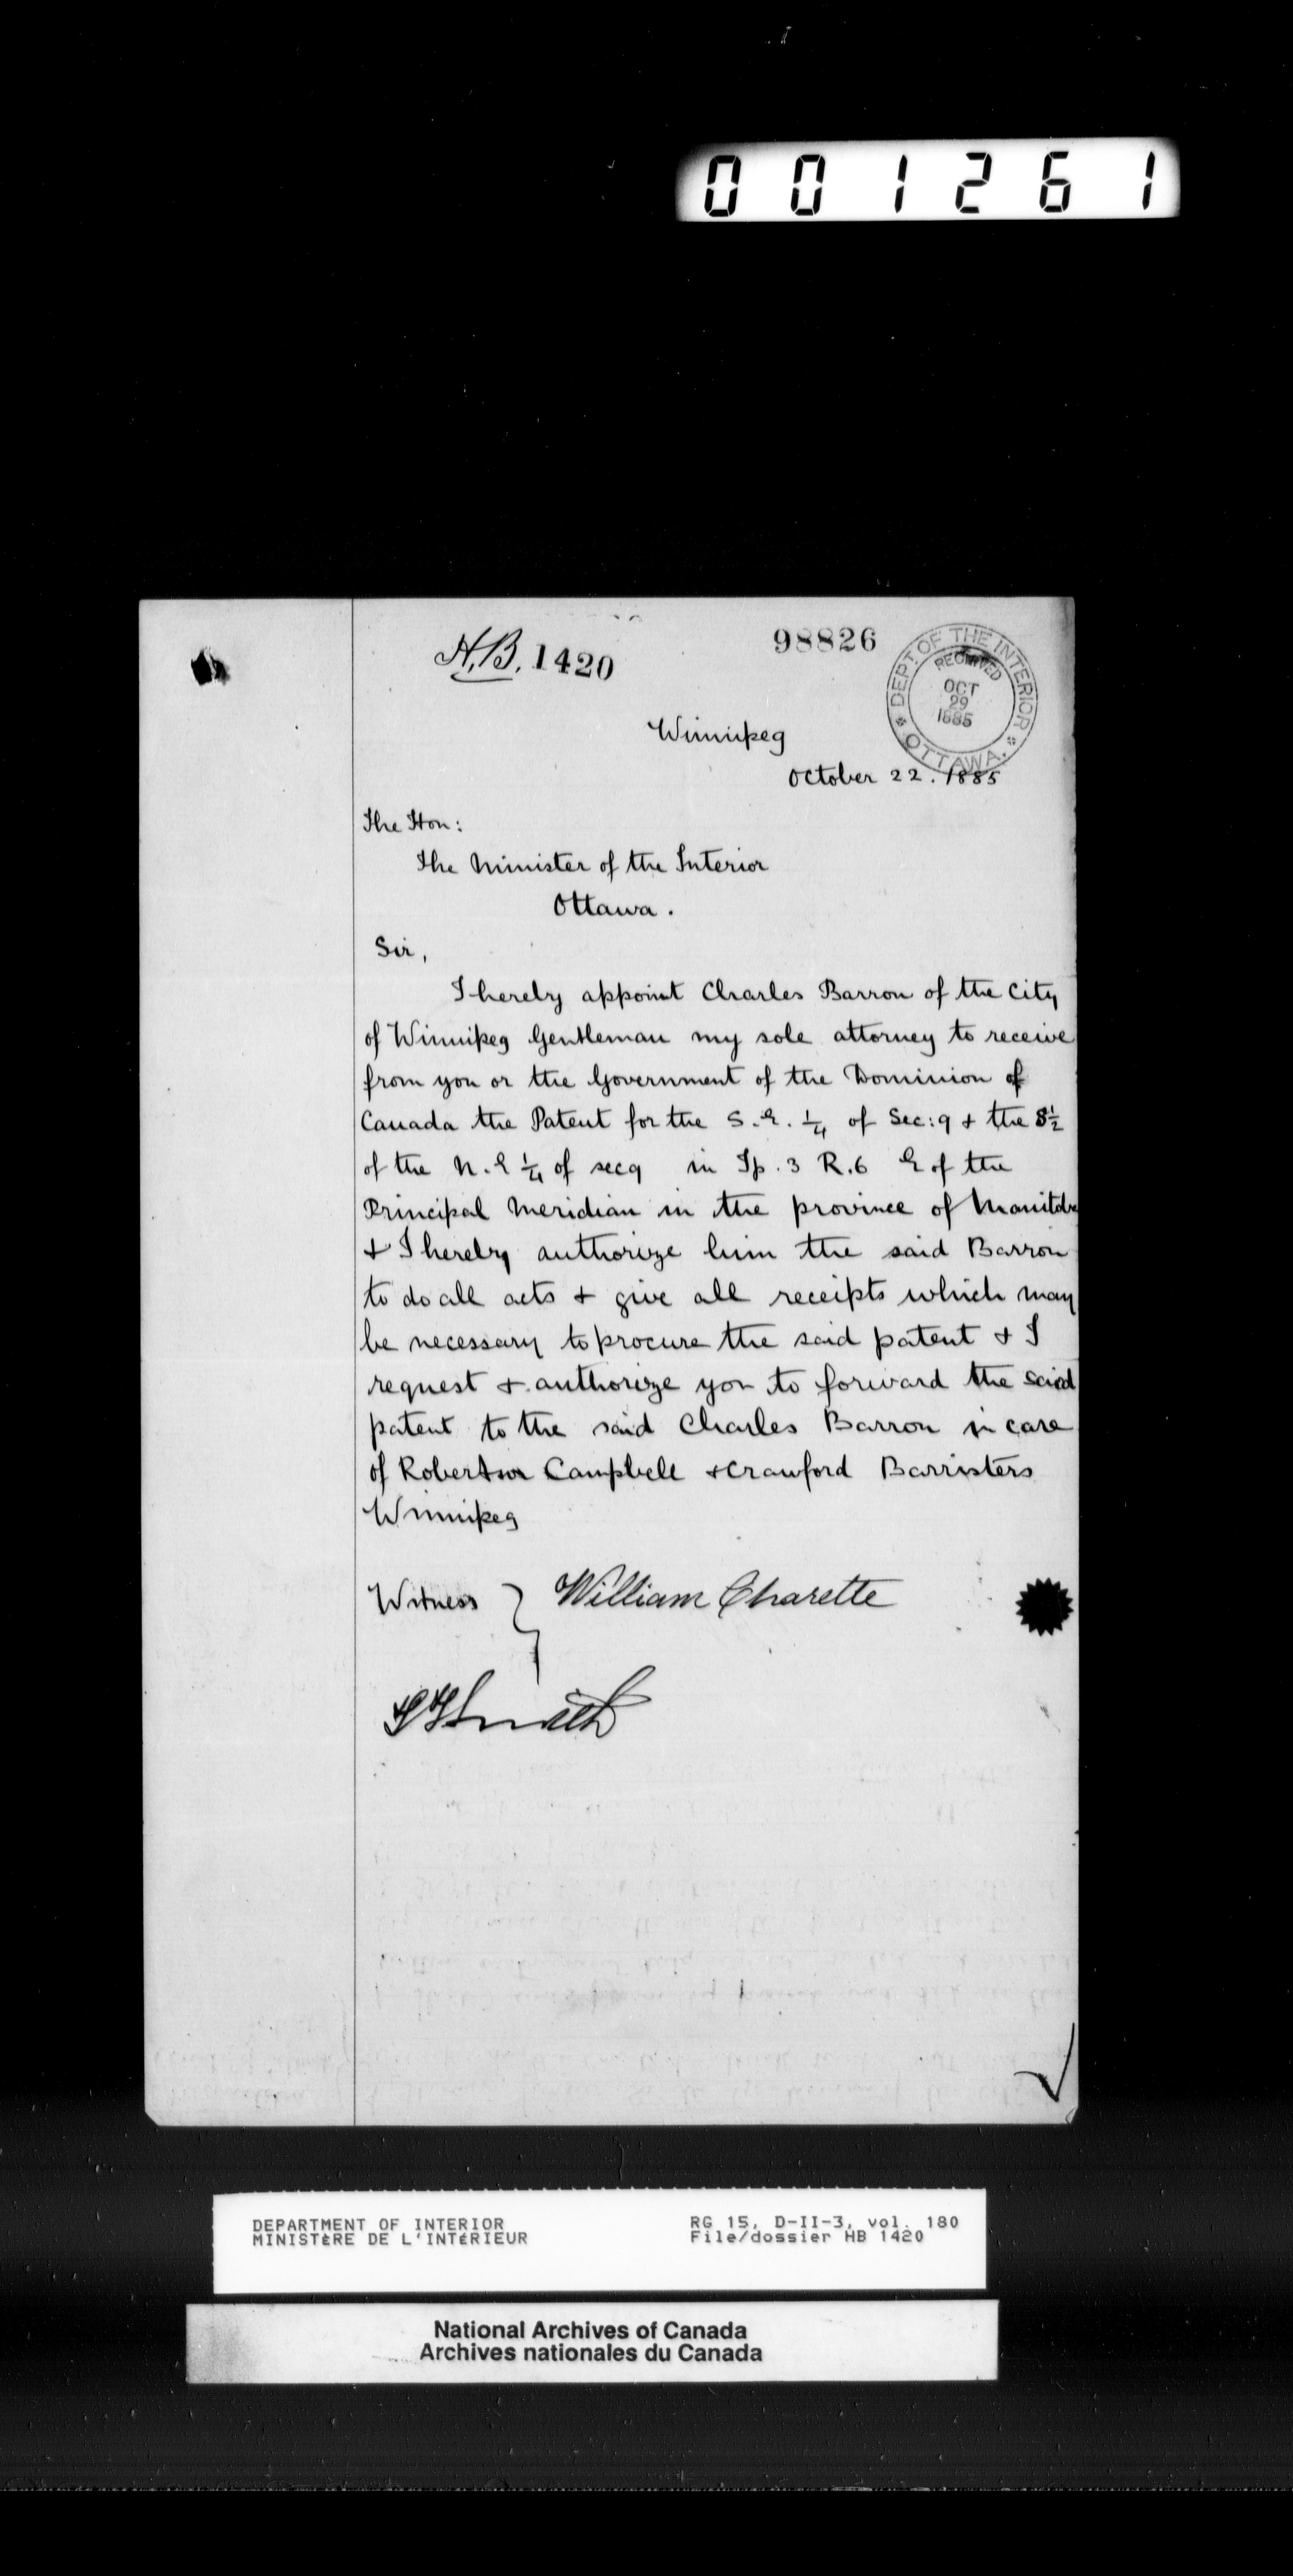 001261
H.B. 1420
98826
DEPT. OF THE INTERIOR
RECEIVED
OCT
29
1885
OTTAWA.
Winnipeg
October 22. 1885
The Hon:
The Minister of the Interior
Ottawa.
Sir,
I hereby appoint Charles Barron of the City
of Winnipeg Gentleman my sole attorney to receive
from you or the Government of the Dominion of
Canada the Patent for the S.E. 1/4 of Sec: 9 & the S 1/2
of the N.E 1/4 of sec 9 in Tp. 3 R.6 E of the
Principal Meridian in the province of Manitoba
& I hereby authorize him the said Barron
to do all acts & give all receipts which may
be necessary to procure the said patent & I
request & authorize you to forward the said
patent to the said Charles Barron in care
of Robertson Campbell & Crawford Barristers
Winnipeg
Witness } William Charette
Smith
DEPARTMENT OF INTERIOR
MINISTÈRE DE L'INTÉRIEUR
RG 15, D-II-3, vol. 180
File/dossier HB 1420
National Archives of Canada
Archives nationales du Canada